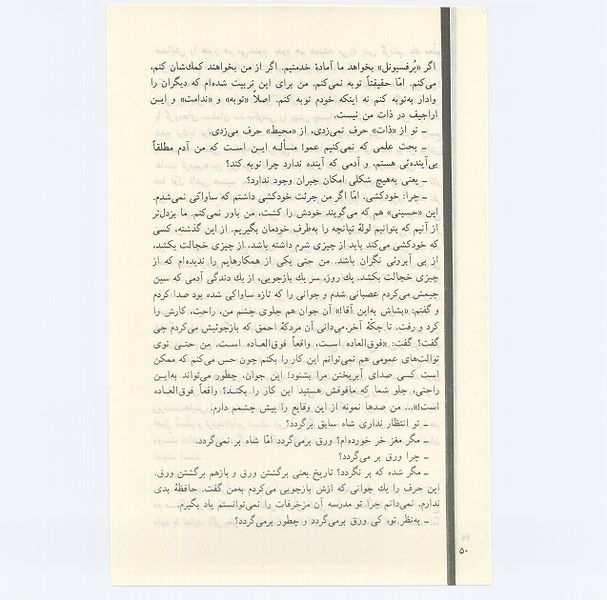 اگر «پُرفسیونل» بخواهد ما آمادهٔ خدمتیم. اگر از من بخواهند کمك‌شان کنم،
می‌کنم. امّا حقیقتاً توبه نمی‌کنم. من برای این تربیت شده‌ام که دیگران را
وادار به‌توبه کنم نه اینکه خودم توبه کنم. اصلاً «توبه» و «ندامت» و ایـن
اراجیف در ذات من نیست.
ـ تو از «ذات» حرف نمی‌زدی، از «محیط» حرف می‌زدی.
ـ بحث علمی که نمی‌کنیم عمو! مسألـه ایـن اسـت که من آدم مطلقاً
بی‌آینده‌ئی هستم، و آدمی که آینده ندارد چرا توبه کند؟
ـ یعنی به‌هیچ شکلی امکان جبران وجود ندارد؟
ـ چرا: خودکشی. امّا اگر من جرئت خودکشی داشتم که ساواکی نمی‌شدم.
این «حسینی» هم که می‌گویند خودش را کشت، من باور نمی‌کنم. ما بزدل‌تر
از آنیم که بتوانیم لولهٔ تپانچه را به‌طرف خودمان بگیریم. از این گذشته، کسی
که خودکشی می‌کند باید از چیزی شرم داشته باشد، از چیزی خجالت بکشد،
از بی آبروئی نگران باشد. من حتی یکی از همکارهایم را ندیده‌ام که از
چیزی خجالت بکشد. یك روز، سر یك بازجویی، از یك دندگی آدمی که سین
جیمش می‌کردم عصبانی شدم و جوانی را که تازه ساواکی شده بود صدا کردم
و گفتم: «بشاش به‌این آقا!» آن جوان هم جلوی چشم من، راحت، کارش را
کرد و رفت. تا چکّهٔ آخر. می‌دانی آن مردکهٔ احمق که بازجوئیش می‌کردم چی
گفت؟ گفت: «فوق‌العاده اسـت، واقعاً فوق‌العـاده اسـت. من حتـی توی
توالت‌های عمومی هم نمی‌توانم این کار را بکنم چون حس می‌کنم که ممکن
است کسی صدای آبریختن مرا بشنود؛ این جوان، چطور می‌تواند به‌ایـن
راحتی، جلو شما که مافوقش هستید این کار را بکنـد؟ واقعاً فوق‌العـاده
است!»... من صدها نمونه از این وقایع را پیش چشمم دارم.
ـ تو انتظار نداری شاه سابق برگردد؟
ـ مگر مغز خر خورده‌ام؟ ورق برمی‌گردد امّا شاه بر نمی‌گردد.
ـ چرا ورق بر می‌گردد؟
ـ مگر شده که بر نگردد؟ تاریخ یعنی برگشتن ورق و بازهم برگشتن ورق.
این حرف را یك جوانی که ازش بازجویی می‌کردم به‌من گفت. حافظهٔ بدی
ندارم. نمی‌دانم چرا تو مدرسه آن مزخرفات را نمی‌توانستم یاد بگیرم.
ـ به‌نظر تو، کی ورق برمی‌گردد و چطور برمی‌گردد؟
۵۰